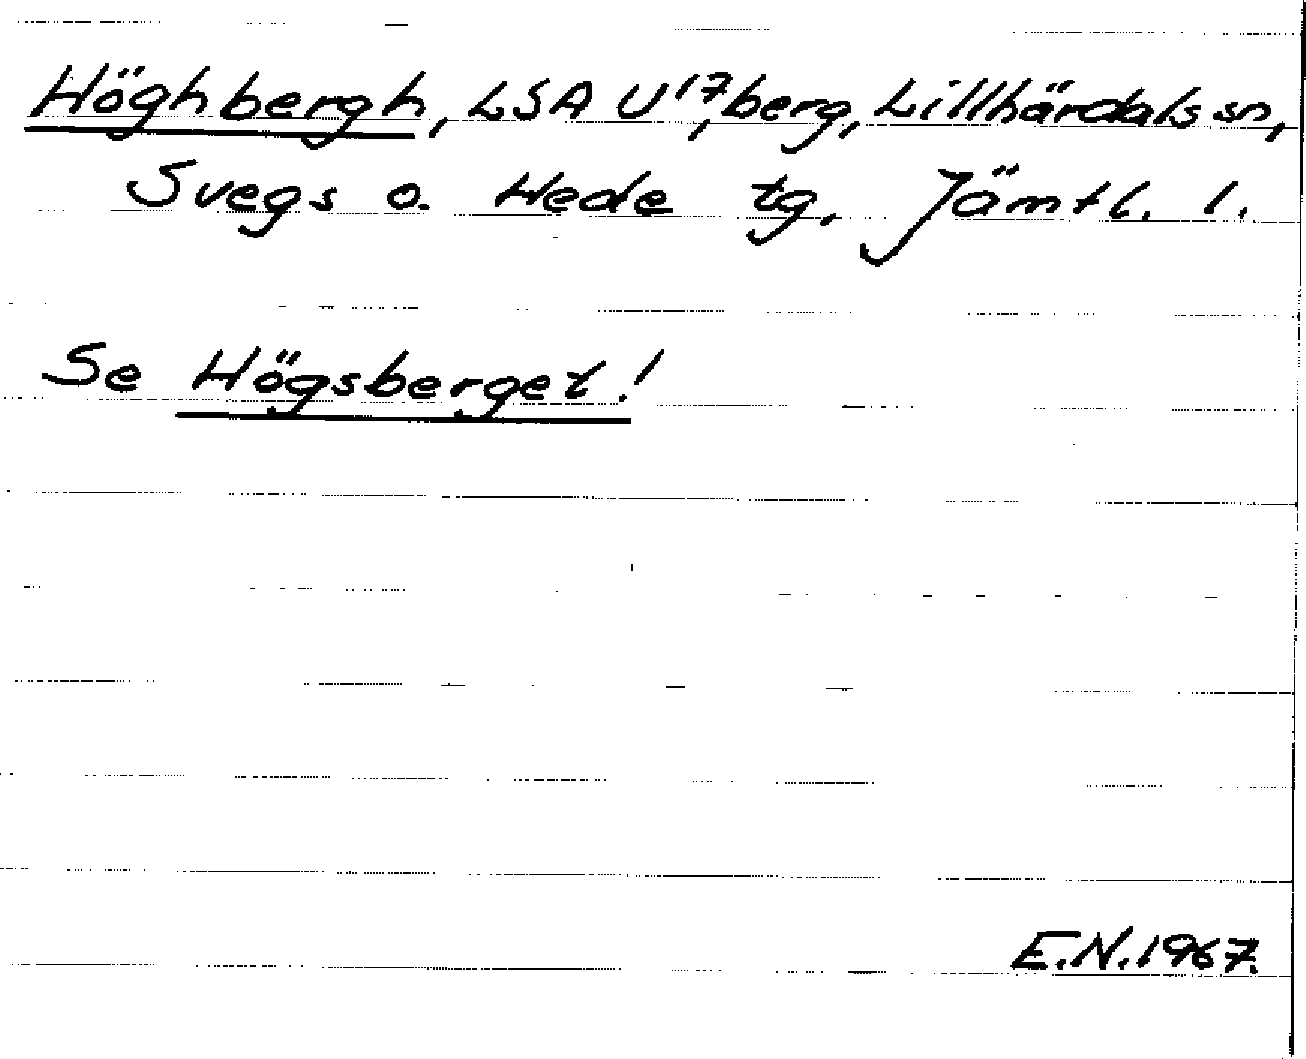 Höghbergh, LSA U¹⁷, berg, Lillhärdals sn,
Svegs o. Hede tg, Jämtl. l.
Se Högsberget!
E.N. 1967.